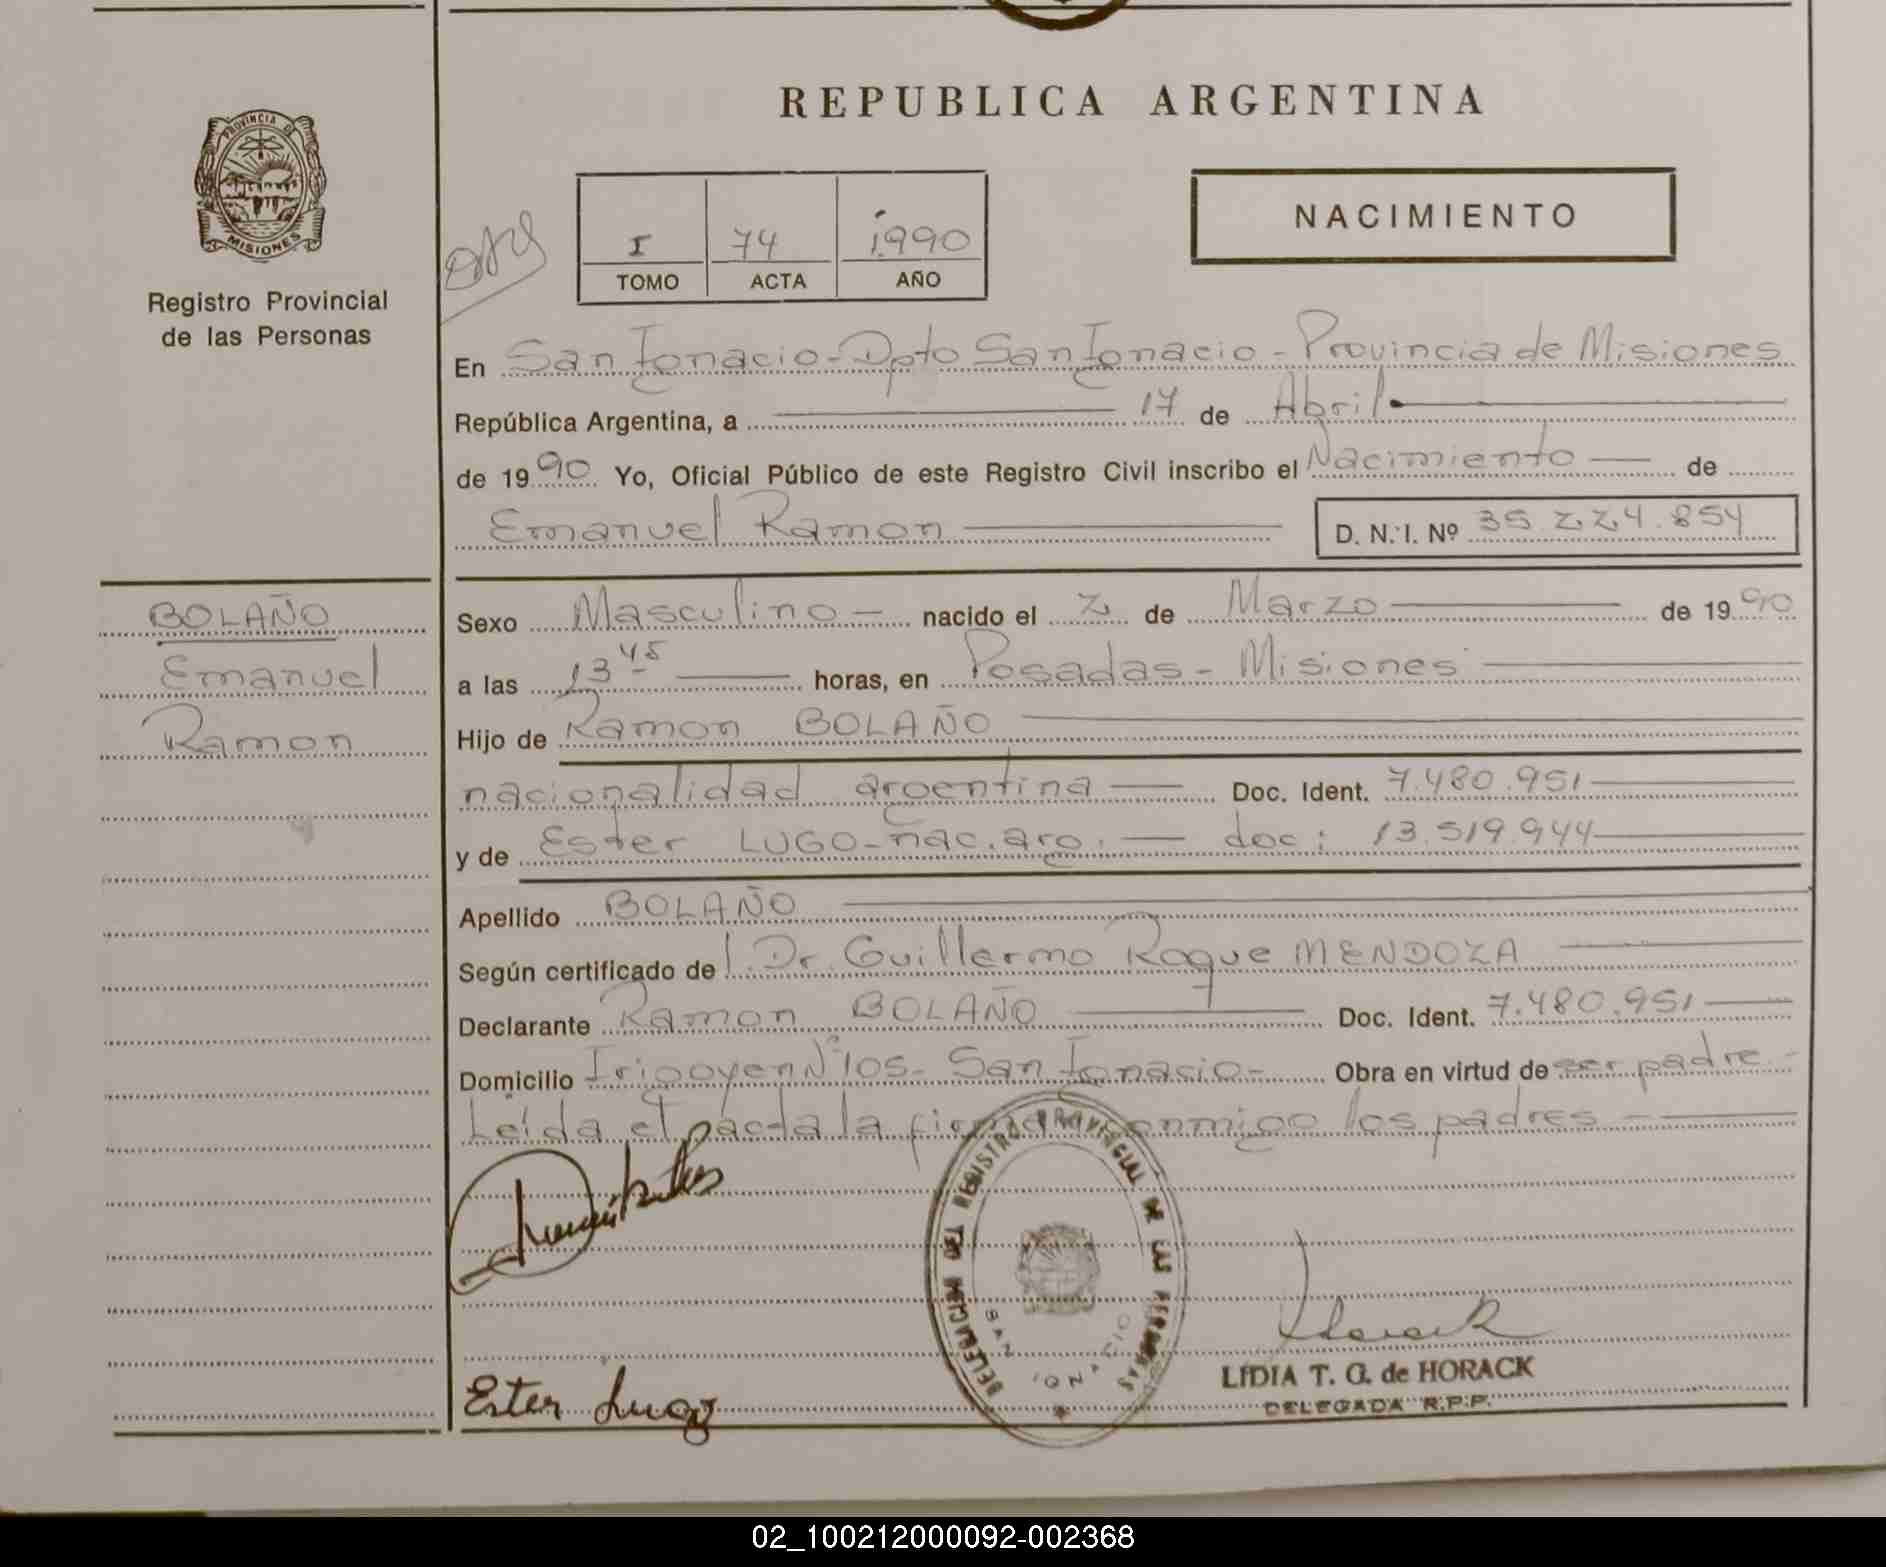 REPUBLICA ARGENTINA
PROVINCIA DE
MISIONES
Registro Provincial
de las Personas
I 74 1990
TOMO ACTA AÑO
NACIMIENTO
En San Ignacio - Dpto San Ignacio - Provincia de Misiones
República Argentina, a 17 de Abril
de 1990 Yo, Oficial Público de este Registro Civil inscribo el Nacimiento de
Emanuel Ramon D. N. I. Nº 35.224.854
BOLAÑO
Emanuel
Ramon
Sexo Masculino nacido el 2 de Marzo de 1990
a las 13 45 horas, en Posadas - Misiones
Hijo de Ramon BOLAÑO
nacionalidad argentina Doc. Ident. 7.480.951
y de Ester LUGO - nac. arg. doc: 13.519.944
Apellido BOLAÑO
Según certificado de l Dr. Guillermo Roque MENDOZA
Declarante Ramon BOLAÑO Doc. Ident. 7.480.951
Domicilio Irigoyen Nº 105 - San Ignacio - Obra en virtud de ser padre -
Leida el acta la conmigo los padres
DELEGACION DEL REGISTRO PROVINCIAL DE LAS PERSONAS
SAN IGNACIO
Horack
LIDIA T. G. de HORACK
DELEGADA R.P.P.
Ester Lugo
02_100212000092-002368